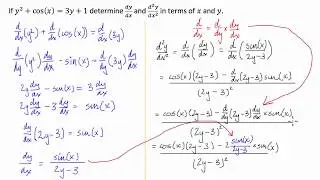 If y² + cos(x) = 3y + 1 determine dy/dx and d²y/dx² in terms of x and y.
d/dx(y²) + d/dx(cos(x)) = d/dx(3y)
dy/dx · d/dy(y²) - sin(x) = dy/dx · d/dy(3y)
2y dy/dx - sin(x) = 3 dy/dx
2y dy/dx - 3 dy/dx = sin(x)
dy/dx (2y-3) = sin(x)
dy/dx = sin(x)/(2y-3)
d/dx = dy/dx × d/dy
d²y/dx² = d/dx(dy/dx) = d/dx(sin(x)/(2y-3))
= (cos(x)(2y-3) - d/dx(2y-3) sin(x))/(2y-3)²
= (cos(x)(2y-3) - d/dy(2y-3) dy/dx × sin(x))/(2y-3)²
= (cos(x)(2y-3) - 2 sin(x)/(2y-3) × sin(x))/(2y-3)²